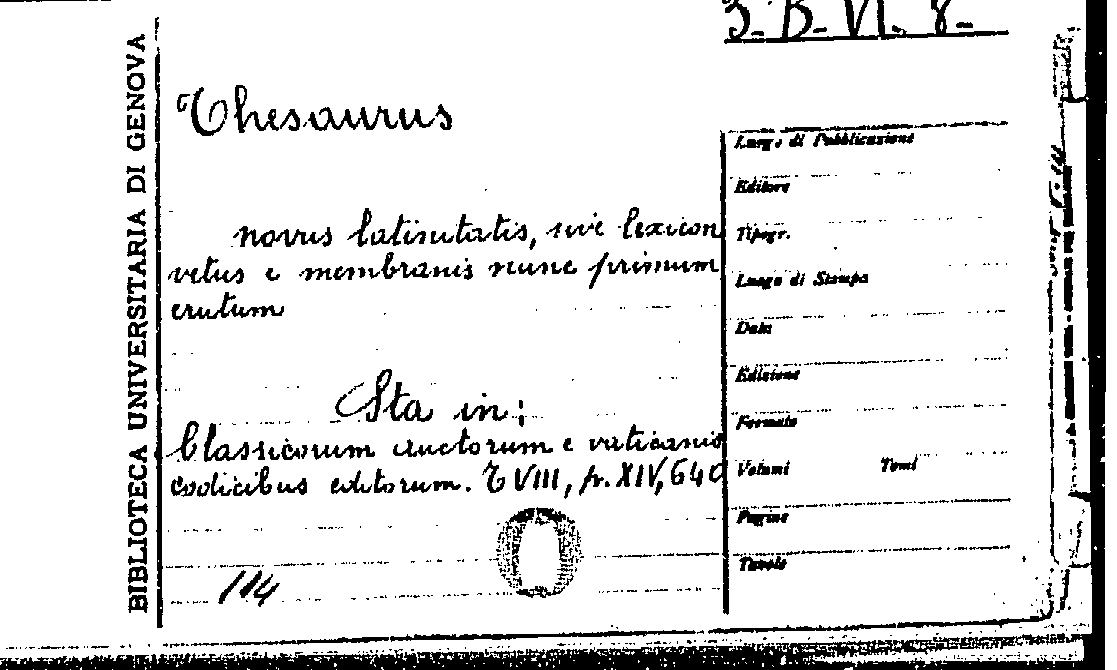 3-B-VI. 8-
BIBLIOTECA UNIVERSITARIA DI GENOVA
Thesaurus
novus latinitatis, sive lexicon
vetus e membranis nunc primum
erutum
Sta in:
Classicorum auctorum e vaticanis
codicibus editorum. T VIII, p. XIV, 640
114
Luogo di Pubblicazione
Editore
Tipogr.
Luogo di Stampa
Data
Edizione
Formato
Volumi Tomi
Pagine
Tavole